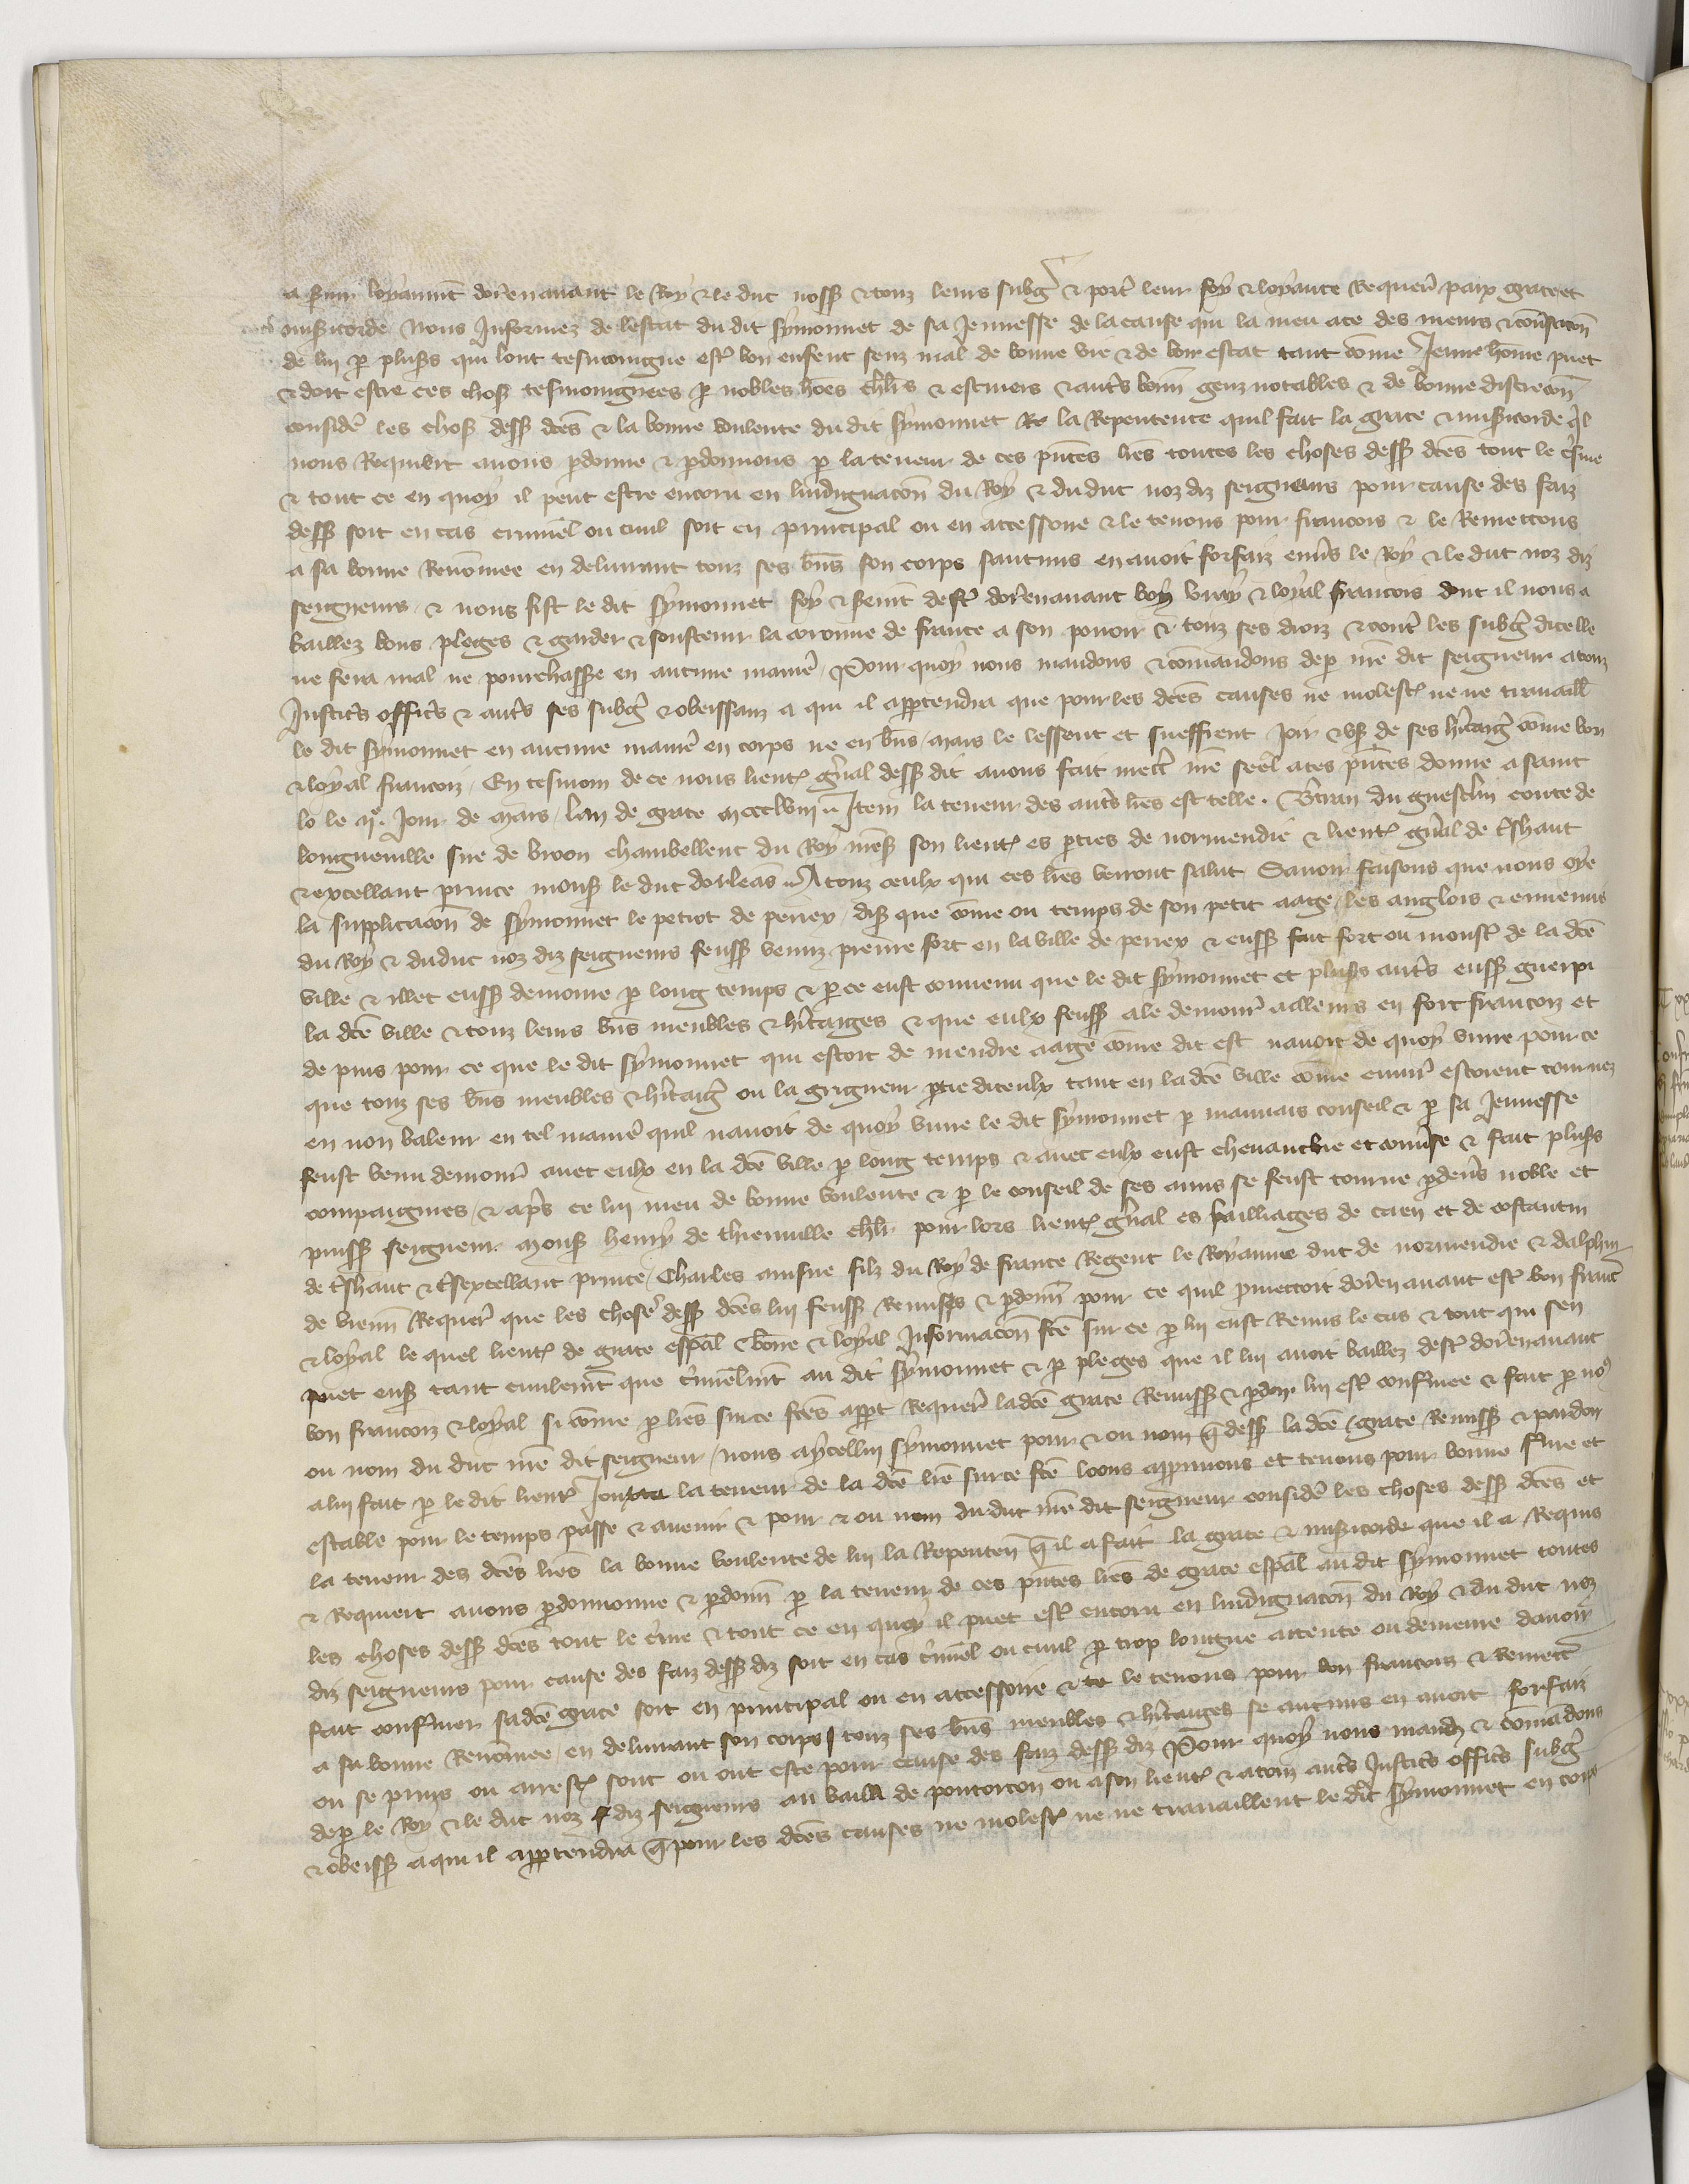 a s̃uir loyaum̃t dorenauant le Roy & le duc noss̃ & touz leurs subg̃ & port̃ leur foy & loyaute Requer̃ paix grace et
mis̃icorde Nous Informez de lestat du dit Symonnet de sa Jeunesse de la cause qui la meu a ce des meurs & cõũsacõn
de lui p̱ plus̃s qui lont tesmoingne est̃ bon enfent senz mal de bonne vie & de bon estat tant cõme Jeune hõme puet
& doit estre ces chos̃ tesmoingnees p̱ nobles hões chl̃rs & escuiers & aut̃s bõn genz notables & de bonne discrecõn
consider̃ les chos̃ dess̃ dc̃es & la bonne voulente du dit Symonnet la Repentence quil fait la grace & mis̃icorde q̃l
nous Requiert auons p̱donne & p̱donnons p̱ la teneur de ces pñtes lr̃es toutes les choses dess̃ dc̃es tout le c̃ime
& tout ce en quoy il peut estre encoru en lindignacõn du Roy & du duc noz diz seigneurs pour cause des faiz
dess̃ soit en cas criminel ou ciuil soit en principal ou en accessoire & le tenons pour francois & le Remettons
a sa bonne Renõmee en deliurant touz ses bñs son corps saucuns en auoit forfaiz enũs le Roy & le duc noz diz
seigneurs & nous fist le dit Symonnet foy & sẽm̃t dest̃ dorenauant bon vray & loyal francois dont il nous a
baillez bons pleges & garder & soustenir la coronne de france a son pouoir & touz ses droiz & cont̃ les subg̃ dicelle
ne fera mal ne pourchasse en aucune manier̃ Pour quoy nous mandons & cõmandons de p̱ mõ dit seigneur a touz
Justic̃s offic̃s & aut̃s ses subg̃ & obeissanz a qui il app̱tendra que pour les dc̃es causes ne molest̃ ne ne trauaill̃
le dit Symonnet en aucune manier̃ en corps ne en bñs mais le lessent et sueffrent Joir & us̃ de ses h̃itaig̃ cõme bon
& loyal francois En tesmoin de ce nous lieut̃ gñal dess̃ dit auons fait mett̃ nr̃e seel a ces pñtes donne a saint
lo le iiᵉ Jour de mars lan de grace mccclviii Item la teneur des aut̃s lr̃es est telle. B̃tran du guesclin conte de
longueuille sire de broon chambellenc du Roy nr̃e s̃ son lieut̃ es p̱ties de normendie & lieut̃ gñal de t̃shaut
& excellant prince mons̃ le duc dorleãs A touz ceulx qui ces lr̃es verront salut Sauoir faisons que nous oye
la supplicacõn de Symonnet le petiot de periex dis̃ que cõme ou temps de son petit aage les anglois & ennemis
du Roy & du duc noz diz seigneurs feuss̃ venuz prenre fort en la ville de periex & euss̃ fait fort ou monst̃ de la dc̃e
ville & illec euss̃ demoure p̱ long temps & p̱ ce eust conuenu que le dit Symonnet et plus̃s aut̃s euss̃ guerpi
la dc̃e ville & touz leurs bñs meubles & h̃itaiges & que eulx feuss̃ ale demour̃ ailleurs en fort francois et
de puis pour ce que le dit Symonnet qui estoit de mendre aage cõme dit est nauoit de quoy viure pour ce
que touz ses bñs meubles & h̃itaig̃ ou la grigneur p̱tie diceulx tant en la dc̃e ville cõme enuir̃ estoient tournez
en non valeur en tel manier̃ quil nauoit de quoy viure le dit Symonnet p̱ mauuais conseil & p̱ sa Jeunesse
feust venu demour̃ auec eulx en la dc̃e ville p̱ long temps & auec eulx eust cheuauchie et & fait plus̃s
compaignies & ap̃s ce lui meu de bonne voulente & p̱ le conseil de ses amis se feust tourne p̱deũs noble et
puiss̃ seigneur mons̃ henry de thieuuille chl̃r pour lors lieut̃ gñal es bailliages de caen et de costantin
de t̃shaut & t̃sexcellant prince Charles ainsne filz du Roy de france Regent le Royaume duc de normendie & dalphin
de vienñ Requer̃ que les choses dess̃ dc̃es lui feuss̃ Remises & p̱donñ pour ce quil p̱mettoit dorenauant est̃ bon franc̃
& loyal le quel lieut̃ de grace esp̱al & bõne & loyal Informacõn fc̃e sur ce p̱ lui eust Remis le cas & tout qui sen
puet ens̃ tant ciuilem̃t que c̃iminelm̃t au dit Symonnet & p̱ pleges que il lui auoit baillez dest̃ dorenauant
bon francois & loyal si cõme p̱ lr̃es sur ce fc̃es app̱t Requer̃ la dc̃e grace Remiss̃ & p̱don lui est̃ confirmee & fait p̱ nous
ou nom du duc mõ dit seigneur nous aycellui Symonnet pour & ou nom q̃ dess̃ la dc̃e grace Remiss̃ & pardon
a lui fait p̱ le dit lieut̃ Jouxte la teneur de la dc̃e lr̃e sur ce fc̃e loons approuuons et tenons pour bonne fme et
estable pour le temps passe & auenir & pour & ou nom du duc mõ dit seigneur consider̃ les choses dess̃ dc̃es et
la teneur des dc̃es lr̃es la bonne voulente de lui la Repenten̄ q̃ il a fait la grace & mis̃icorde que il a Requis
& Requiert auons p̱donnonne & p̱donñ p̱ la teneur de ces pñtes lr̃es de grace esp̱al au dit Symonnet toutes
les choses dess̃ dc̃es tout le c̃ime & tout ce en quoy il puet est̃ encoru en lindignacõn du Roy & du duc noz
diz seigneurs pour cause des faiz dess̃ diz soit en cas c̃iminel ou ciuil p̱ trop longue attente ou demeure dauoir
fait confirmer sa dc̃e grace soit en principal ou en accessoire & le tenons pour bon francois & Remett̃
a sa bonne Renõmee en deliurant son corps touz ses bñs meubles & h̃itaiges se aucuns en auoit forfaiz
ou se prins ou arrest̃ sont ou ont este pour cause des faiz dess̃ diz Pour quoy nous mandõ & cõmandons
de p̱ le Roy & le duc noz diz seigneurs au bailli de pontorcon ou a son lieut̃ & a touz aut̃s Justic̃s offic̃s subg̃
& obeiss̃ a qui il app̱tendra q̃ pour les dc̃es causes ne molest̃ ne ne trauaillent le dit Symonnet en corps